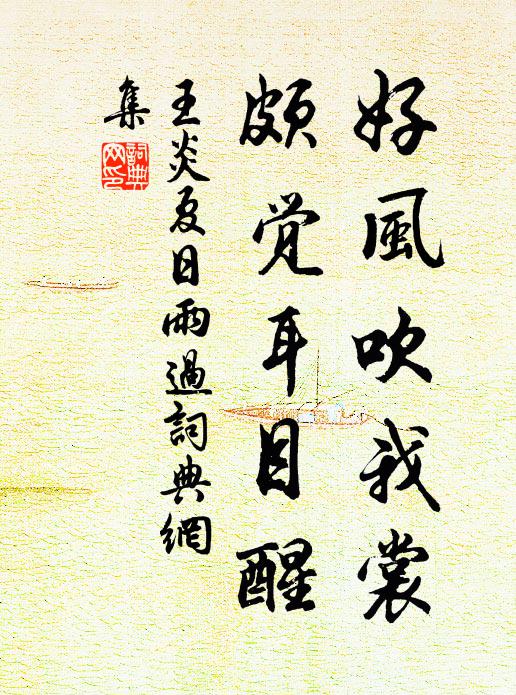 好風吹我裳
頗覚耳目醒
王炎夏日雨過詞典網
集
詞典网印